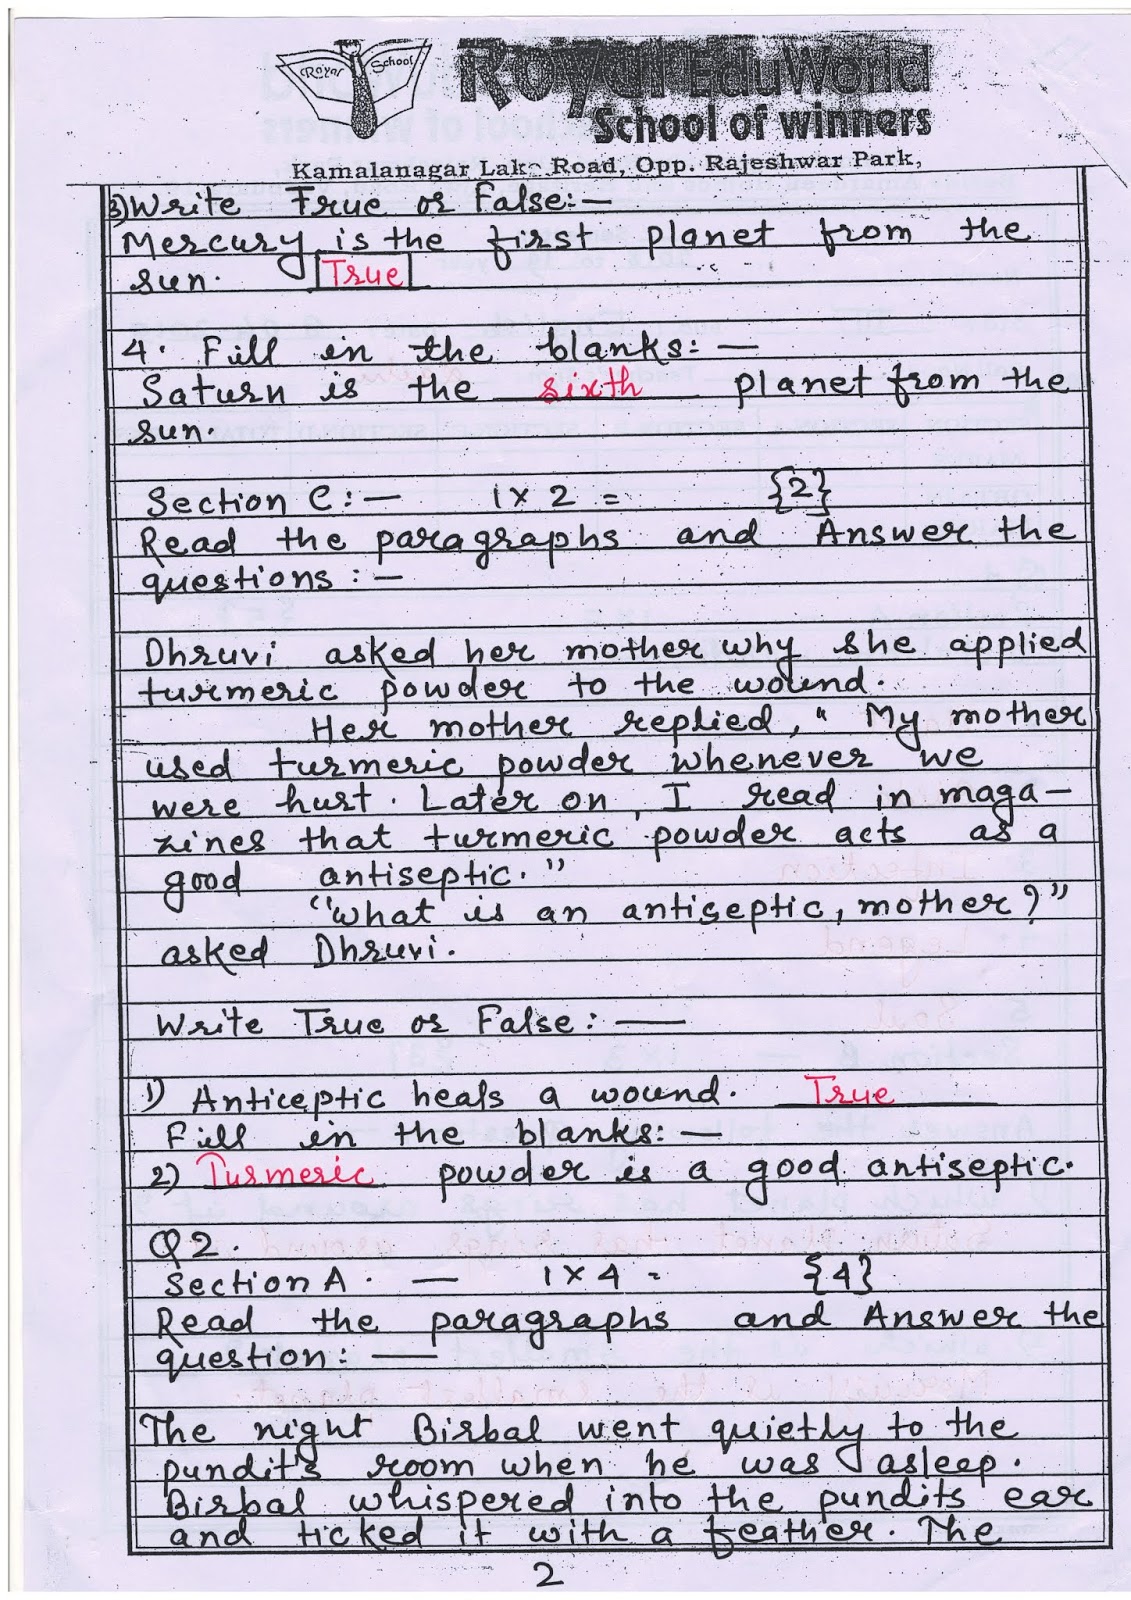 Royal School
Royal EduWorld
School of winners
Kamalanagar Lake Road, Opp. Rajeshwar Park,
3) Write True or False:—
Mercury is the first planet from the
sun. True
4. Fill in the blanks:—
Saturn is the sixth planet from the
sun.
Section C:— 1 x 2 = {2}
Read the paragraphs and Answer the
questions:—
Dhruvi asked her mother why she applied
turmeric powder to the wound.
Her mother replied, "My mother
used turmeric powder whenever we
were hurt. Later on, I read in maga-
zines that turmeric powder acts as a
good antiseptic."
"What is an antiseptic, mother?"
asked Dhruvi.
Write True or False:—
1) Anticeptic heals a wound. True
Fill in the blanks:—
2) Turmeric powder is a good antiseptic.
Q2.
Section A. — 1 x 4 = {4}
Read the paragraphs and Answer the
question:—
The night Birbal went quietly to the
pundit's room when he was asleep.
Birbal whispered into the pundits ear
and ticked it with a feather. The
2